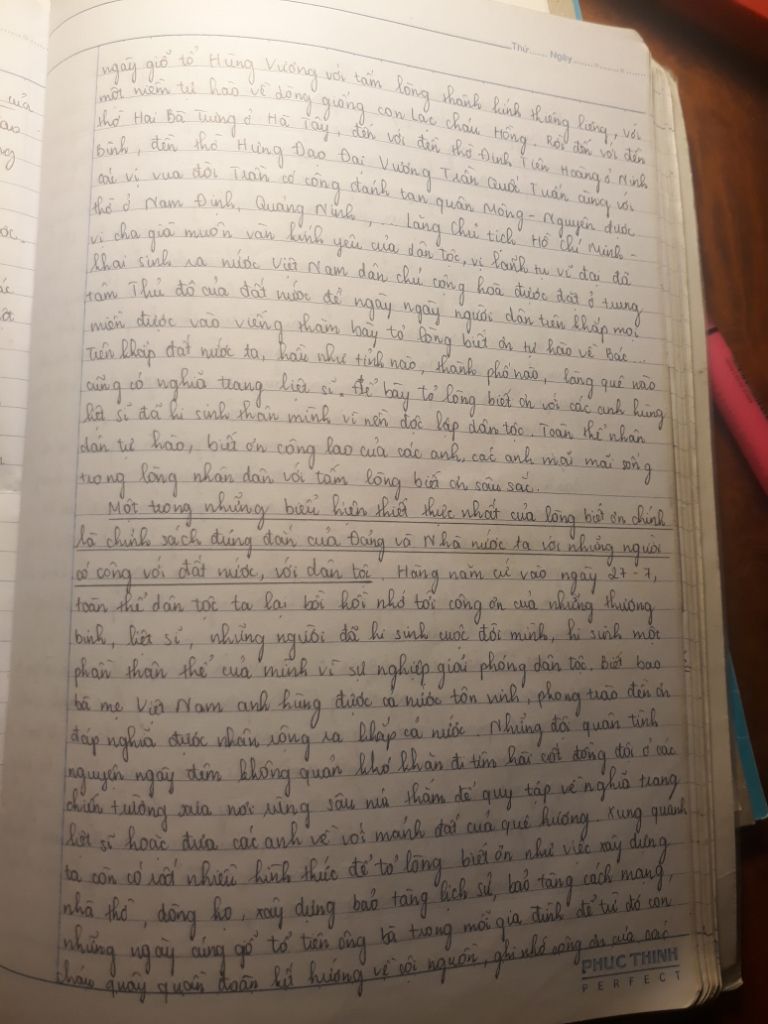 Thứ...... Ngày..................
ngày giỗ tổ Hùng Vương với tấm lòng thành kính thiêng liêng, với
một niềm tự hào về dòng giống con Lạc cháu Hồng. Rồi đến với đền
thờ Hai Bà Trưng ở Hà Tây, đến với đền thờ Đinh Tiên Hoàng ở Ninh
Bình, đền thờ Hưng Đạo Đại Vương Trần Quốc Tuấn cùng với
các vị vua đời Trần có công đánh tan quân Mông - Nguyên được
thờ ở Nam Định, Quảng Ninh, ... Lăng Chủ tịch Hồ Chí Minh -
vị cha già muôn vàn kính yêu của dân tộc, vị lãnh tụ vĩ đại đã
khai sinh ra nước Việt Nam dân chủ cộng hoà được đặt ở trung
tâm Thủ đô của đất nước để ngày ngày người dân trên khắp mọi
miền được vào viếng thăm bày tỏ lòng biết ơn tự hào về Bác...
Trên khắp đất nước ta, hầu như tỉnh nào, thành phố nào, làng quê nào
cũng có nghĩa trang liệt sĩ. Để bày tỏ lòng biết ơn với các anh hùng
liệt sĩ đã hi sinh thân mình vì nền độc lập dân tộc. Toàn thể nhân
dân tự hào, biết ơn công lao của các anh, các anh mãi mãi sống
trong lòng nhân dân với tấm lòng biết ơn sâu sắc.
Một trong những biểu hiện thiết thực nhất của lòng biết ơn chính
là chính sách đúng đắn của Đảng và Nhà nước ta với những người
có công với đất nước, với dân tộc. Hàng năm cứ vào ngày 27-7,
toàn thể dân tộc ta lại bồi hồi nhớ tới công ơn của những thương
binh, liệt sĩ, những người đã hi sinh cuộc đời mình, hi sinh một
phần thân thể của mình vì sự nghiệp giải phóng dân tộc. Biết bao
bà mẹ Việt Nam anh hùng được cả nước tôn vinh, phong trào đền ơn
đáp nghĩa được nhân rộng ra khắp cả nước. Những đội quân tình
nguyện ngày đêm không quản khó khăn đi tìm hài cốt đồng đội ở các
chiến trường xưa nơi rừng sâu núi thẳm để quy tập về nghĩa trang
liệt sĩ hoặc đưa các anh về với mảnh đất của quê hương. Xung quanh
ta còn có rất nhiều hình thức để tỏ lòng biết ơn như việc xây dựng
nhà thờ, dòng họ, xây dựng bảo tàng lịch sử, bảo tàng cách mạng,
những ngày cúng giỗ tổ tiên ông bà trong mỗi gia đình để từ đó con
cháu quây quần đoàn kết hướng về cội nguồn, ghi nhớ công ơn của các
PHUC THINH
PERFECT